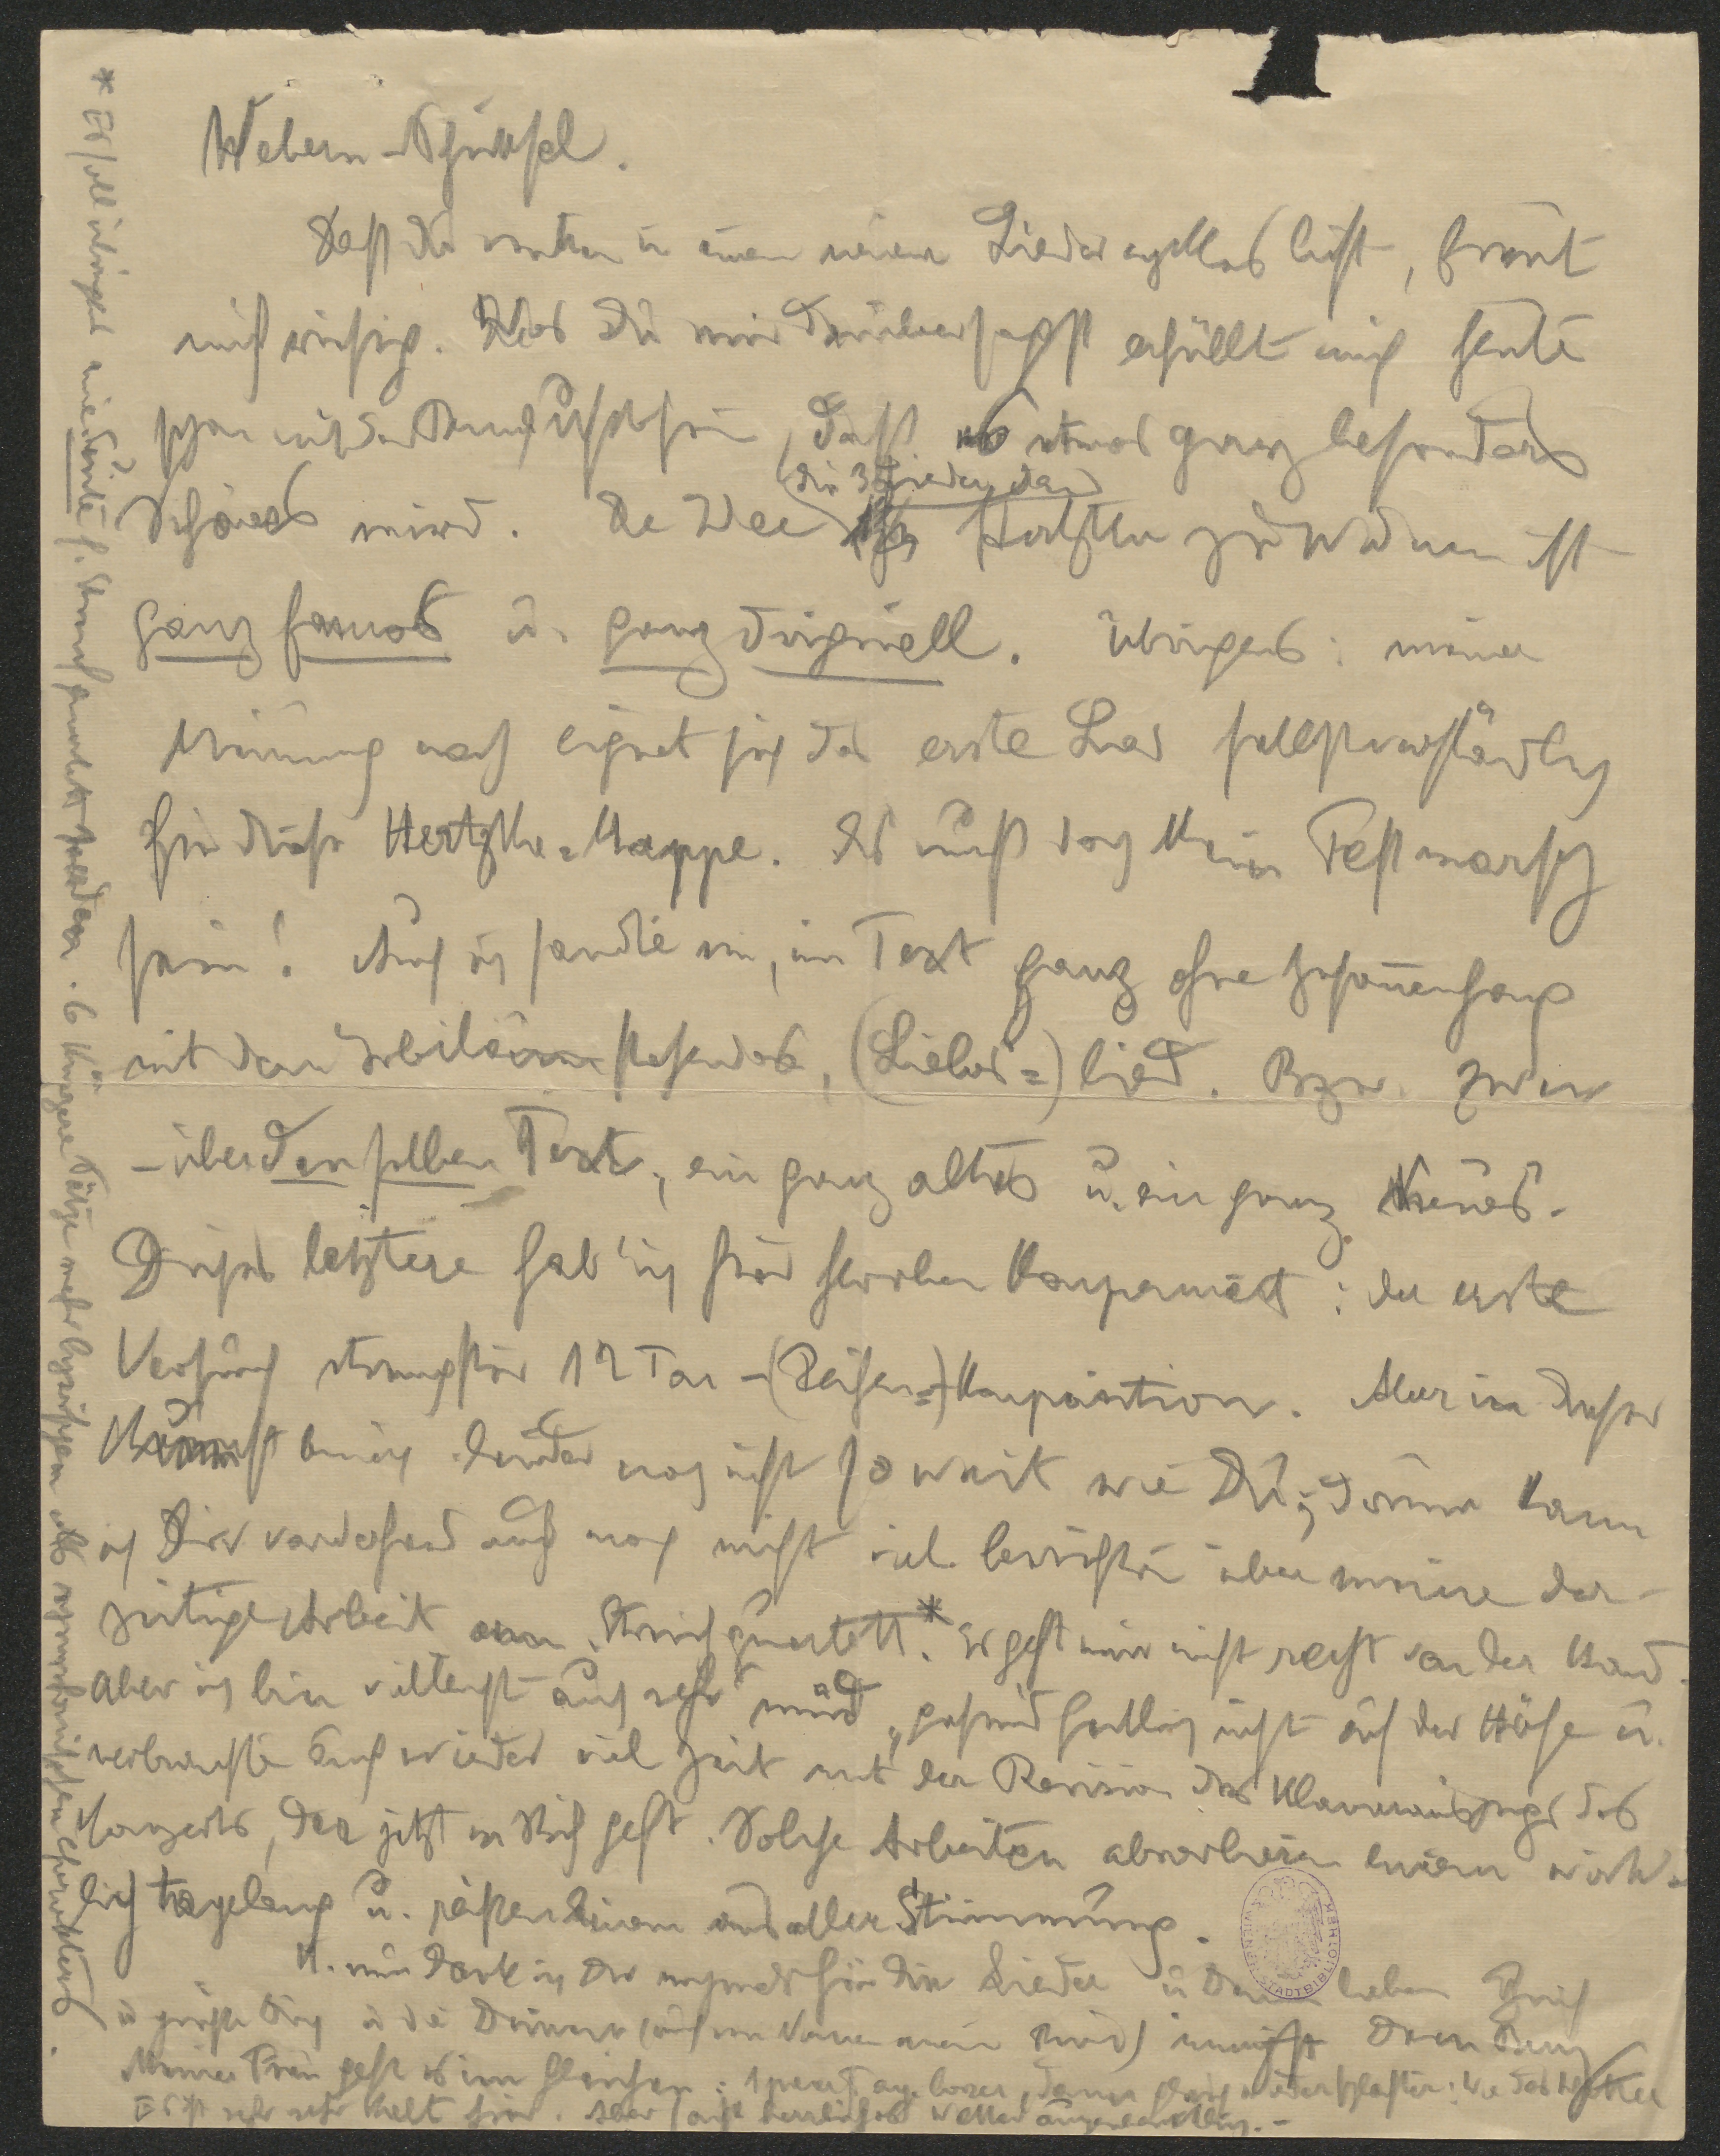 Webern-Schüssel.
Daß Du mitten in einem neuen Liederzyklus bist, freut
mich riesig. Was Du mir darüber sagst erfüllt mich heute
schon mit dem daß es etwas ganz besonders
Schönes wird. Die Idee
(die 3 Lieder dem)
Hertzka zu widmen ist
ganz famos u. ganz originell. Übrigens: meiner
Meinung nach eignet sich das erste Lied selbstverständlich
für diese Hertzka-Mappe. Es muß doch kein Festmarsch
sein! Auch ich sandte ein, im Text ganz ohne Zusammenhang
mit dem Jubiläum stehendes, (Liebes=) lied. Bzw. zwei
– über denselben Text, ein ganz altes u. ein ganz Neues.
Dieses letztere hab' ich hier komponiert: der erste
Versuch strengster 12 Ton-(Reihen=)Komposition. Aber in dieser
Kunst bin ich leider noch nicht so weit wie Du; drum kann
ich Dir vorderhand auch noch nicht viel berichten über meine der-
zeitige Arbeit am Streichquartett.* Er geht mir nicht recht von der Hand.
Aber ich bin vielleicht auch sehr müd, gesundheitlich nicht auf der Höhe u.
verbrauchte auch wieder viel Zeit mit der Revision des Klavierauszugs des
Konzerts, der jetzt in Stich geht. Solche Arbeiten absorbieren einen wirk-
lich tagelang u. reißen einen aus aller Stimmung.
U. nun dank ich Dir nochmals für die Lieder u Deinen lieben Brief
u grüße Dich u die Deinen (auch im Namen meiner Frau) innigst Dein Berg
Meiner Frau geht es im Gleichen: 1 paar Tage besser, dann gleich wieder schlechter: wie das Wetter
Es ist sehr sehr kalt hier. Aber herrliches Wetter augenblicklich.–
* Es soll übrigens eine Suite f. Streichquartett werden. 6 kürzere Sätze mehr lyrischen als symphonischen Charakters.
WIENER STADTBIBLIOTHEK